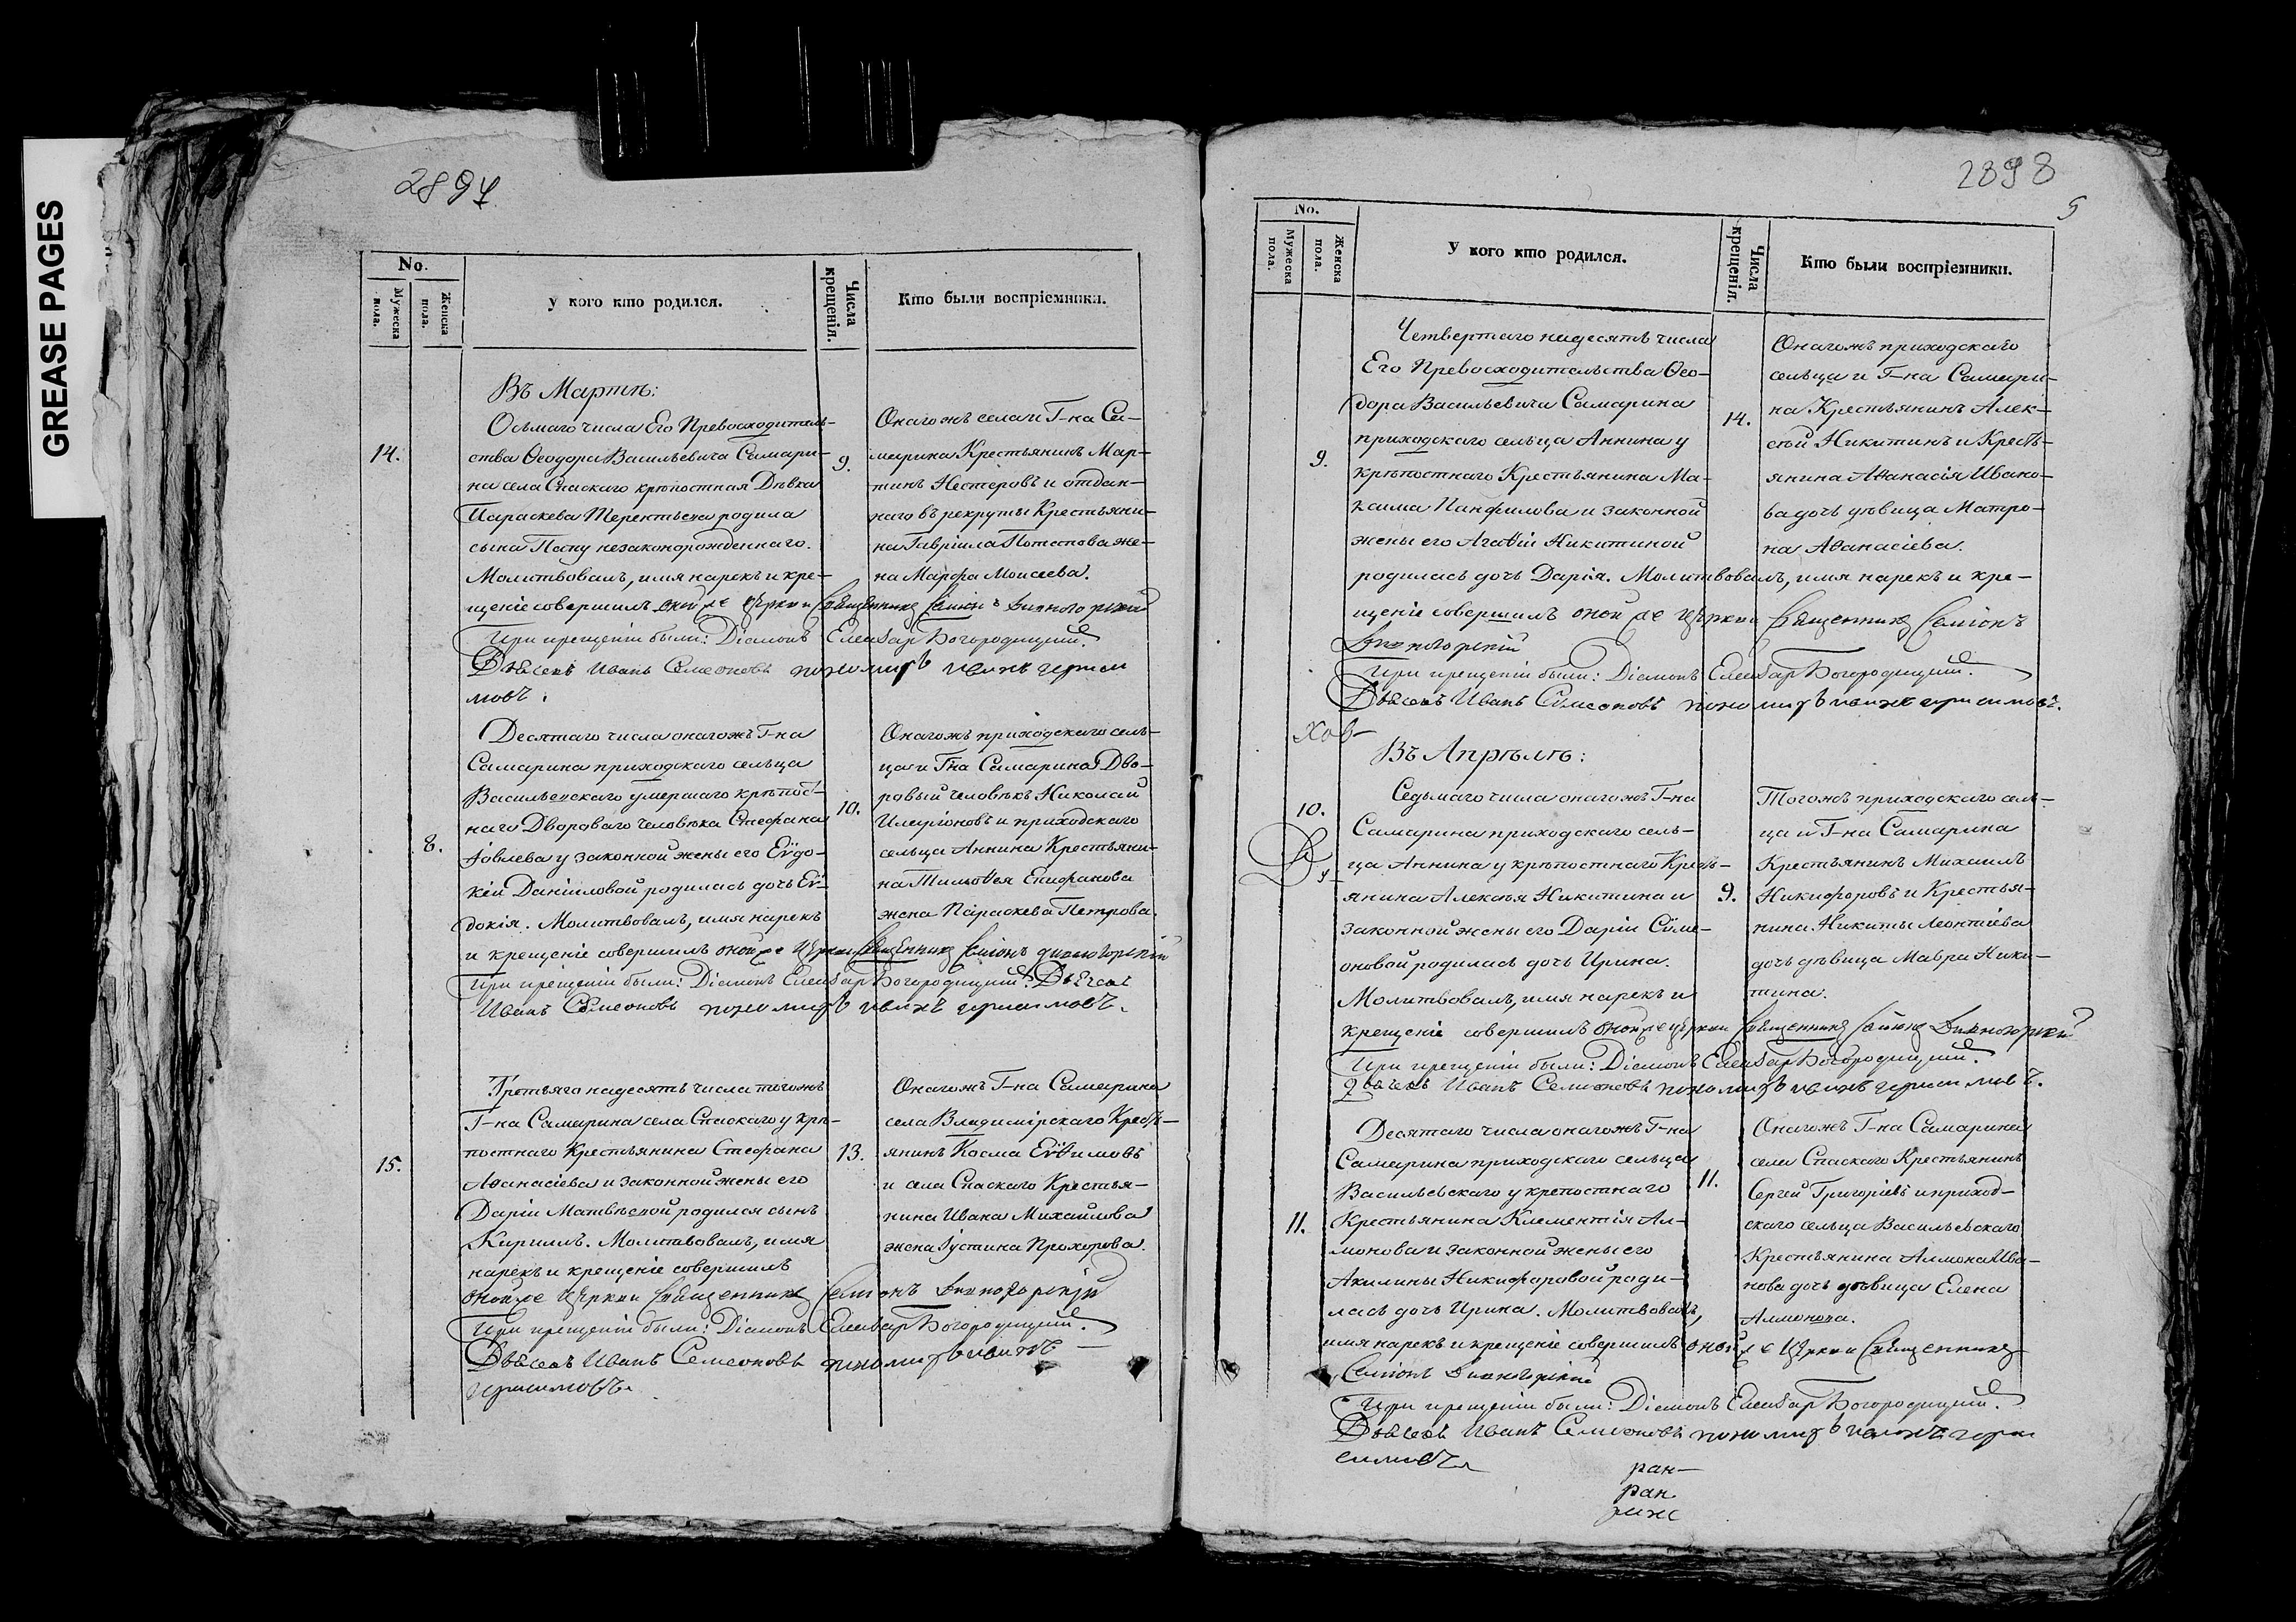 GREASE PAGES
2897
No.
Мужеска пола.
Женска пола.
У кого кто родился.
Числа крещенія.
Кто были воспріемники.
Въ Мартѣ:
14.
Осьмаго числа Его Превосходитель-
ства Ѳеодора Васильевича Самари-
на села Спаскаго крѣпостная Дѣвка
Параскева Терентьева родила
сына незаконорожденнаго.
Молитвовалъ, имя нарекъ и кре-
щеніе совершилъ оной же церкви Священникъ Симеонъ
При крещеніи были: Діаконъ Елеазар Богородицкий.
Дьячекъ Иванъ Семеоновъ пономарь Иванъ Гераси
мовъ.
9.
Онагожъ села и Г-на Са-
марина Крестьянинъ Мар-
тинъ Нестеровъ и отдан-
наго въ рекруты Крестьяни-
на Гавріила Потапова же-
на Марфа Моисеева.
8.
Десятаго числа онагожъ Г-на
Самарина приходскаго сельца
Васильевскаго умершаго крѣпост-
наго Двороваго человѣка Стефана
Іовлева у законной жены его Еѵдо-
кіи Даніиловой родилась дочь Еѵ-
докія. Молитвовалъ, имя нарекъ
и крещеніе совершилъ оной же церкви Священникъ Симеонъ
При крещеніи были: Діаконъ Елеазар Богородицкий. Дьячекъ
Иванъ Семеоновъ пономарь Иванъ Герасимовъ.
10.
Онагожъ приходскаго сель-
ца и Г-на Самарина Дво-
ровый человѣкъ Николай
Иларіоновъ и приходскаго
сельца Аннина Крестьяни-
на Тимоѳея Епифанова
жена Параскева Петрова.
15.
Третьяго надесять числа тогожъ
Г-на Самарина села Спаскаго у крѣ-
постнаго Крестьянина Стефана
Аѳанасіева и законной жены его
Даріи Матвѣевой родился сынъ
Кириллъ. Молитвовалъ, имя
нарекъ и крещеніе совершилъ
оной же церкви Священникъ Симеонъ
При крещеніи были: Діаконъ Елеазар Богородицкий.
Дьячекъ Иванъ Семеоновъ пономарь Иванъ
Герасимовъ.
13.
Онагожъ Г-на Самарина
села Владимірскаго Кресть-
янинъ Косма Еѵѳимовъ
и села Спаскаго Крестья-
нина Ивана Михайлова
жена Іустина Прохорова.
2898
5
No.
Мужеска пола.
Женска пола.
У кого кто родился.
Числа крещенія.
Кто были воспріемники.
9.
Четвертаго надесять числа
Его Превосходительства Ѳео-
дора Васильевича Самарина
приходскаго сельца Аннина у
крѣпостнаго Крестьянина Ма-
ксима Панфилова и законной
жены его Агаѳіи Никитиной
родилась дочь Дарія. Молитвовалъ, имя нарекъ и кре-
щеніе совершилъ оной же церкви Священникъ Симеонъ
При крещеніи были: Діаконъ Елеазар Богородицкий.
Дьячекъ Иванъ Семеоновъ пономарь Иванъ Герасимовъ.
14.
Онагожъ приходскаго
сельца и Г-на Самари-
на Крестьянинъ Алек-
сѣй Никитинъ и Кресть-
янина Аѳанасія Ивано-
ва дочь дѣвица Матро-
на Аѳанасіева.
Хов-
Въ Апрѣлѣ:
10.
Седьмаго числа онагожъ Г-на
Самарина приходскаго сель-
ца Аннина у крѣпостнаго Кресть-
янина Алексѣя Никитина и
законной жены его Даріи Сѵме-
оновой родилась дочь Ирина.
Молитвовалъ, имя нарекъ и
крещеніе совершилъ оной же церкви Священникъ Симеонъ
При крещеніи были: Діаконъ Елеазар Богородицкий.
Дьячекъ Иванъ Семеоновъ пономарь Иванъ Герасимовъ.
9.
Тогожъ приходскаго сель-
ца и Г-на Самарина
Крестьянинъ Михаилъ
Никифоровъ и Крестья-
нина Никиты Леонтіева
дочь дѣвица Мавра Ники-
тина.
11.
Десятаго числа онагожъ Г-на
Самарина приходскаго сельца
Васильевскаго у крепостнаго
Крестьянина Клементія Ал-
монова и законной жены его
Акилины Никифоровой роди-
лась дочь Ирина. Молитвовалъ,
имя нарекъ и крещеніе совершилъ оной же церкви Священникъ
Симеонъ
При крещеніи были: Діаконъ Елеазар Богородицкий.
Дьячекъ Иванъ Семеоновъ пономарь Иванъ Гера
симовъ
11.
Онагожъ Г-на Самарина
села Спаскаго Крестьянинъ
Сергей Григоріевъ и приход-
скаго сельца Васильевскаго
Крестьянина Алмона Ива-
нова дочь дѣвица Елена
Алмонова.
ран-
ран